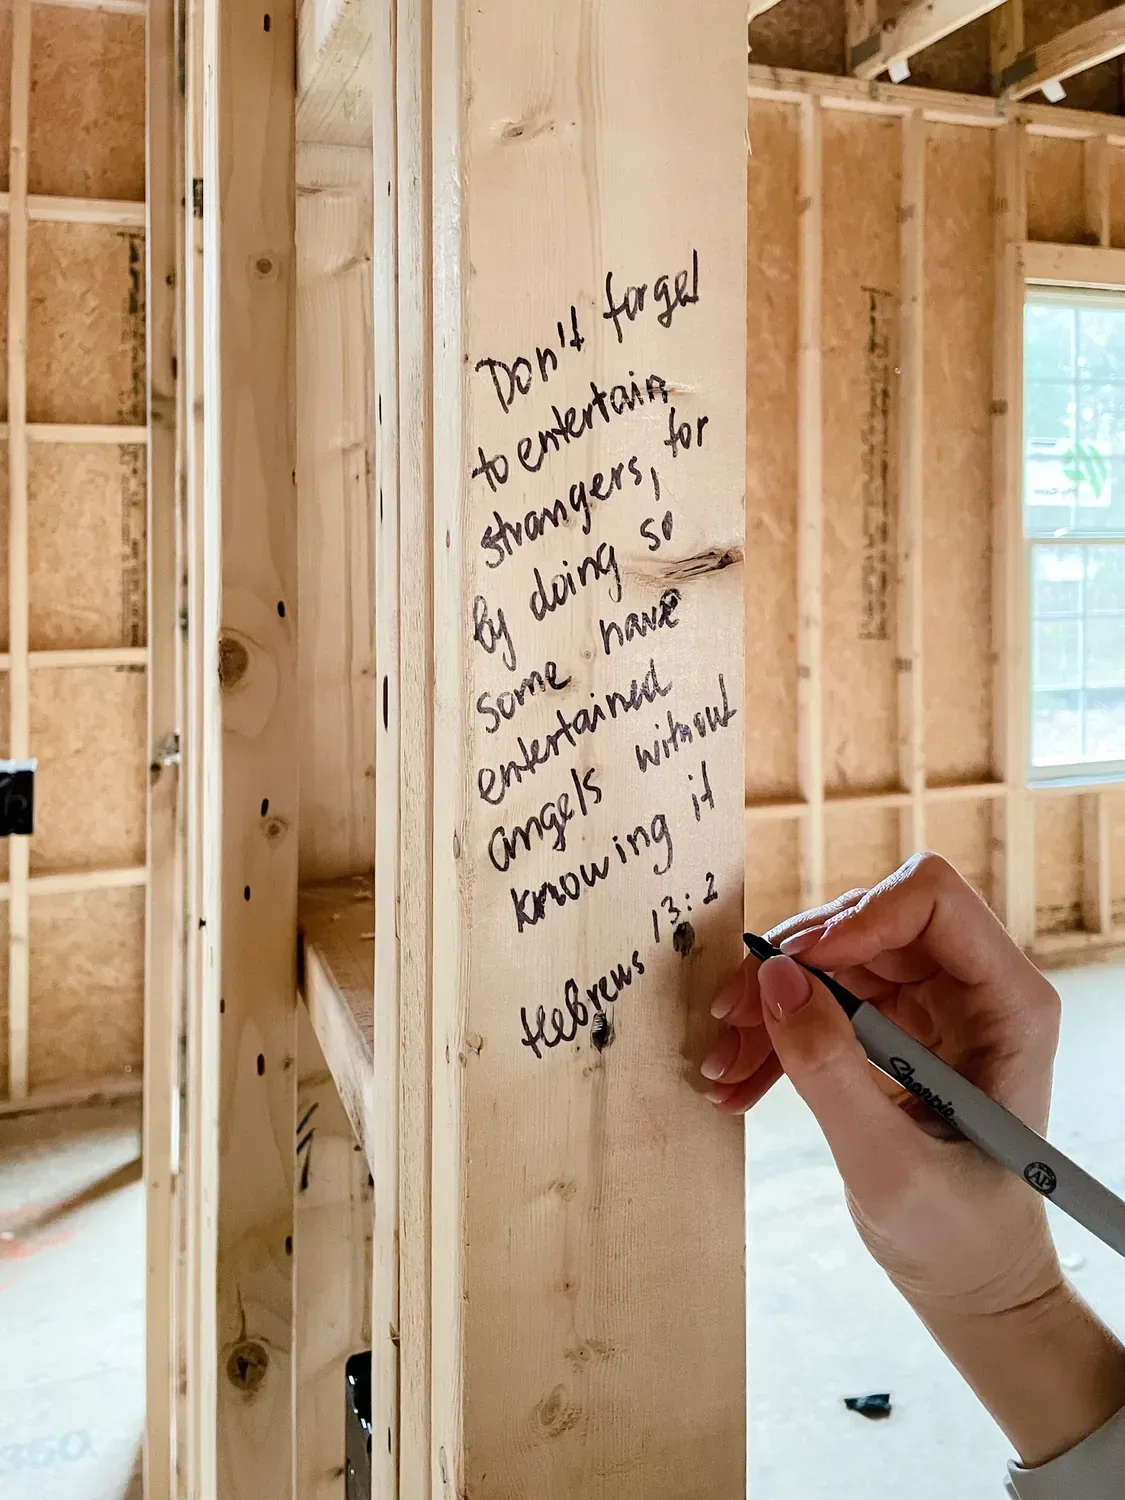 Don't forget
to entertain
strangers, for
by doing so
some have
entertained
angels without
knowing it
Hebrews 13:2
Sharpie
AP